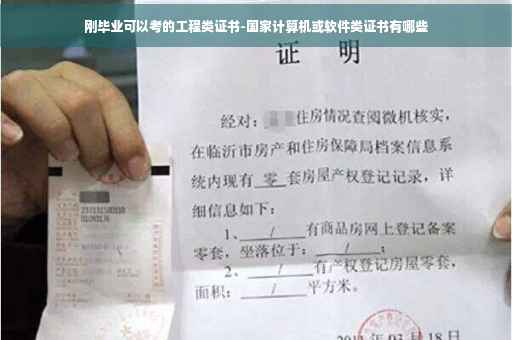 刚毕业可以考的工程类证书-国家计算机或软件类证书有哪些
证 明
经对：住房情况查阅微机核实，
在临沂市房产和住房保障局档案信息系
统内现有 零 套房屋产权登记记录，详
细信息如下：
1、 / 有商品房网上登记备案
零套，坐落位于： / ；
2、 / 有产权登记房屋零套，
面积： / 平方米。
03月18日